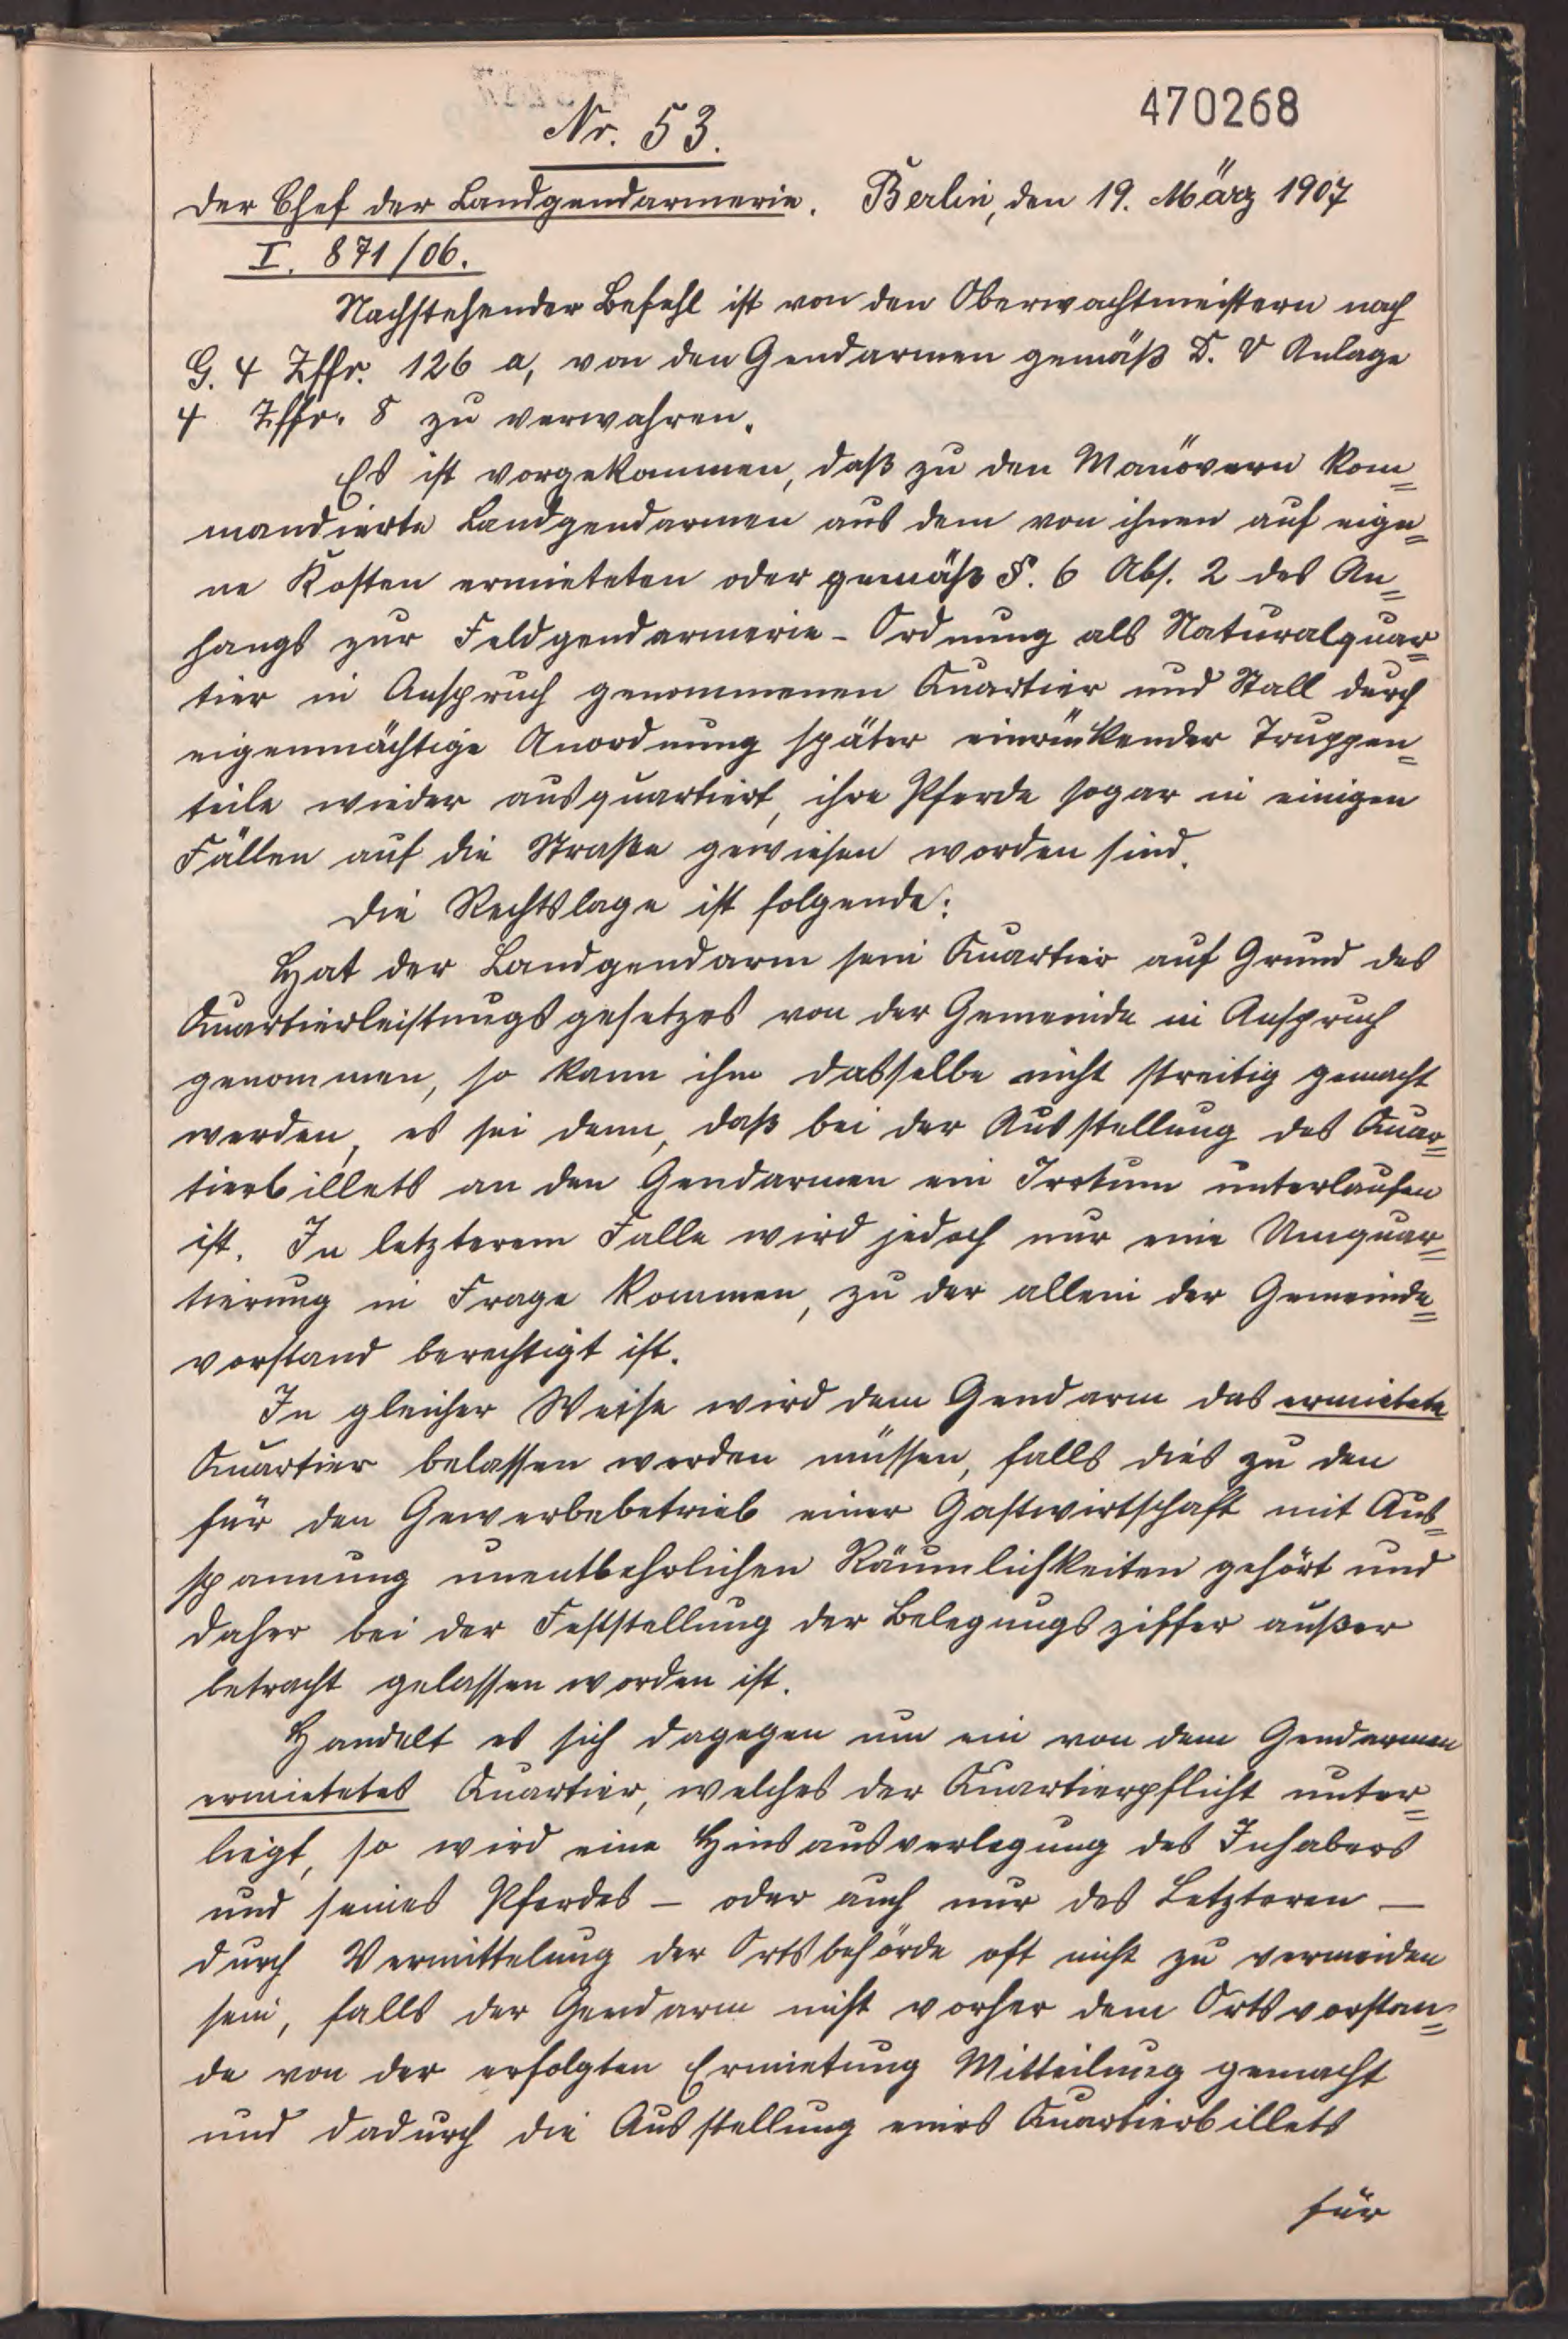 470268
Nr. 53.
Der Chef der Landgendarmerie. Berlin, den 19. März 1907
I. 871/06.
Nachstehender Befehl ist von den Oberwachtmeistern nach
G. 4 Ziffr. 126 a, von den Gendarmen gemäß D. V Anlage
4 Ziffr. 8 zu verwahren.
Es ist vorgekommen, daß zu den Manövern kom=
mandierte Landgendarmen aus dem von ihnen auf eige=
ne Kosten ermieteten oder gemäß §. 6 Abs. 2 des An=
hangs zur Feldgendarmerie-Ordnung als Naturalquar=
tier in Anspruch genommenen Quartier und Stall durch
eigenmächtige Anordnung später einrückender Truppen=
teile wieder ausquartiert, ihre Pferde sogar in einigen
Fällen auf die Straße gewiesen worden sind.
Die Rechtslage ist folgende:
Hat der Landgendarm sein Quartier auf Grund des
Quartierleistungsgesetzes von der Gemeinde in Anspruch
genommen, so kann ihm dasselbe nicht streitig gemacht
werden, es sei denn, daß bei der Ausstellung des Quar=
tierbillets an den Gendarmen ein Irrtum unterlaufen
ist. In letzterem Falle wird jedoch nur eine Umquar=
tierung in Frage kommen, zu der allein der Gemeinde=
vorstand berechtigt ist.
In gleicher Weise wird dem Gendarm das ermietete
Quartier belassen werden müssen, falls dies zu den
für den Gewerbebetrieb einer Gastwirtschaft mit Aus=
spannung unentbehrlichen Räumlichkeiten gehört und
daher bei der Feststellung der Belegungsziffer außer
betracht gelassen worden ist.
Handelt es sich dagegen um ein von dem Gendarmen
ermietetes Quartier, welches der Quartierpflicht unter=
liegt, so wird eine Hinausverlegung des Inhabers
und seines Pferdes – oder auch nur des Letzteren –
durch Vermittelung der Ortsbehörde oft nicht zu vermeiden
sein, falls der Gendarm nicht vorher dem Ortsvorstan=
de von der erfolgten Ermietung Mitteilung gemacht
und dadurch die Ausstellung eines Quartierbillets
für